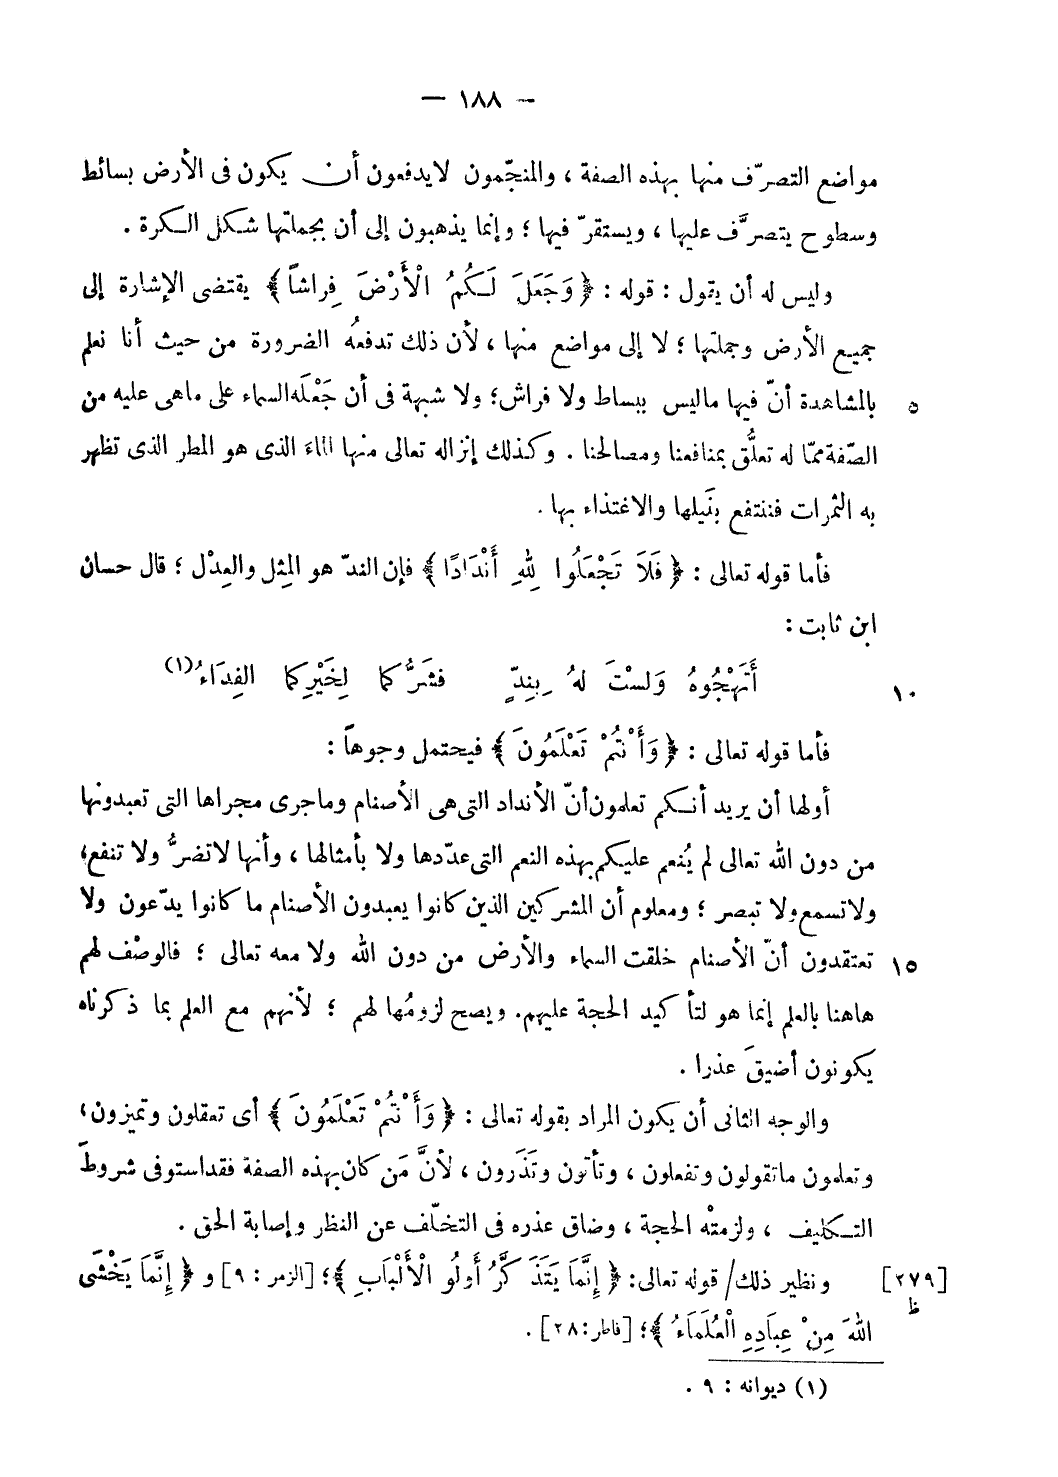 — ١٨٨ —
مواضع التصرّف منها بهذه الصفة ، والمنجّمون لايدفعون أن يكون فى الأرض بسائط
وسطوح يتصرَّف عليها ، ويستقرّ فيها ؛ وإنما يذهبون إلى أن بجملتها شكل الكرة .
وليس له أن يقول : قوله : ﴿ وَجَعَلَ لَكُمُ الْأَرْضَ فِراشاً ﴾ يقتضى الإشارة إلى
جميع الأرض وجملتها ؛ لا إلى مواضع منها ، لأن ذلك تدفعُه الضرورة من حيث أنا نعلم
بالمشاهدة أنّ فيها ماليس ببساط ولا فراش؛ ولا شبهة فى أن جَعْلَه السماء على ماهى عليه من ٥
الصّفة ممّا له تعلُّق بمنافعنا ومصالحنا . وكذلك إنزاله تعالى منها الماءَ الذى هو المطر الذى تظهر
به الثمرات فننتفع بنَيلها والاغتذاء بها .
فأما قوله تعالى : ﴿ فَلَا تَجْعَلُوا لِلهِ أَنْدَادًا ﴾ فإن الندّ هو المِثل والعِدْل ؛ قال حسان
ابن ثابت :
أَتَهْجُوهُ وَلسْتَ لهُ بِنِدٍّ فشَرُّكما لِخَيْرِكما الفِدَاءُ(١) ١٠
فأما قوله تعالى : ﴿ وَأَنْتُمْ تَعْلَمُونَ ﴾ فيحتمل وجوهاً :
أولها أن يريد أنكم تعلمون أنّ الأنداد التى هى الأصنام وماجرى مجراها التى تعبدونها
من دون الله تعالى لم يُنعم عليكم بهذه النعم التى عدّدها ولا بأمثالها ، وأنها لاتضرُّ ولا تنفع؛
ولا تسمع ولا تبصر ؛ ومعلوم أن المشركين الذين كانوا يعبدون الأصنام ما كانوا يدّعون ولا
تعتقدون أنّ الأصنام خلقت السماء والأرض من دون الله ولا معه تعالى ؛ فالوصْف لهم ١٥
هاهنا بالعلم إنما هو لتأكيد الحجة عليهم. ويصح لزومُها لهم ؛ لأنهم مع العلم بما ذكرناه
يكونون أضيقَ عذرا .
والوجه الثانى أن يكون المراد بقوله تعالى : ﴿ وَأَنْتُمْ تَعْلَمُونَ ﴾ أى تعقلون وتميزون؛
وتعلمون ماتقولون وتفعلون ، وتأتون وتَذَرون ، لأنَّ مَن كان بهذه الصفة فقد استوفى شروطَ
التكليف ، ولزمتْه الحجة ، وضاق عذره فى التخلّف عن النظر وإصابة الحق .
ونظير ذلك/ قوله تعالى: ﴿ إِنَّمَا يَتَذَكَّرُ أُولُو الْأَلْبَابِ ﴾؛ [الزمر : ٩] و ﴿ إِنَّمَا يَخْشَى [٢٧٩]
ظ
اللهَ مِنْ عِبَادِهِ الْعُلَمَاءُ ﴾؛ [فاطر: ٢٨] .
(١) ديوانه : ٩ .